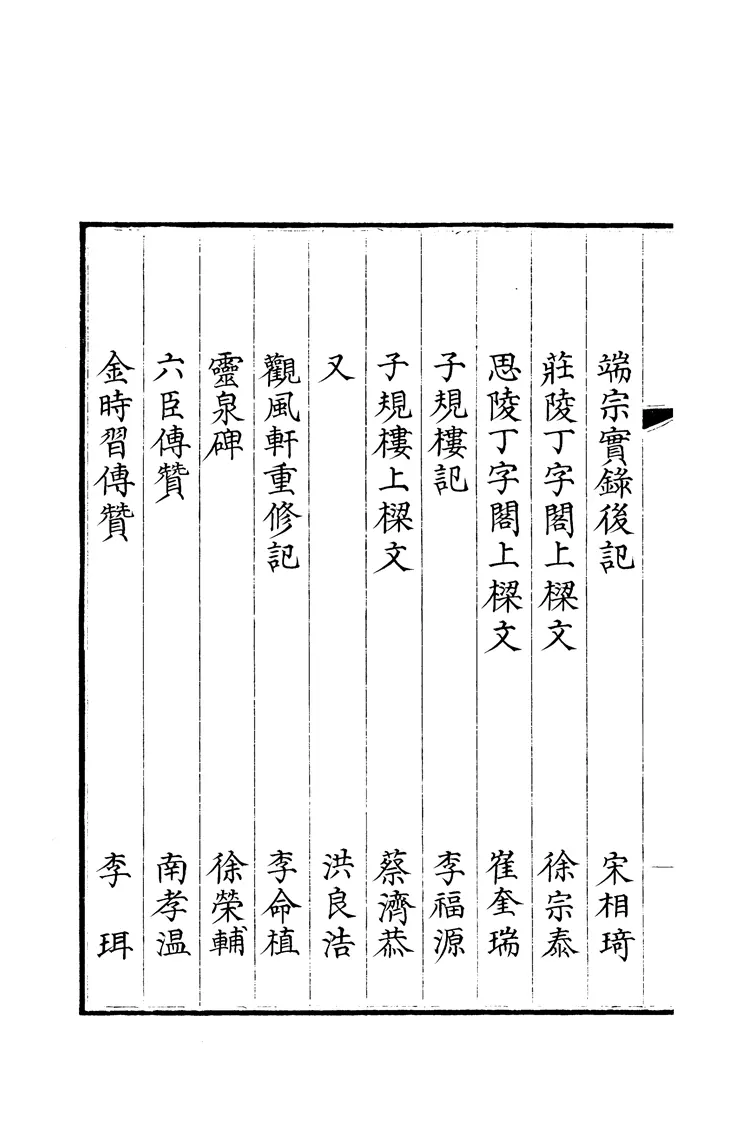 端宗實錄後記　宋相琦
莊陵丁字閣上樑文　徐宗泰
思陵丁字閣上樑文　崔奎瑞
子規樓記　李福源
子規樓上樑文　蔡濟恭
又　洪良浩
觀風軒重修記　李命植
靈泉碑　徐榮輔
六臣傳贊　南孝温
金時習傳贊　李珥